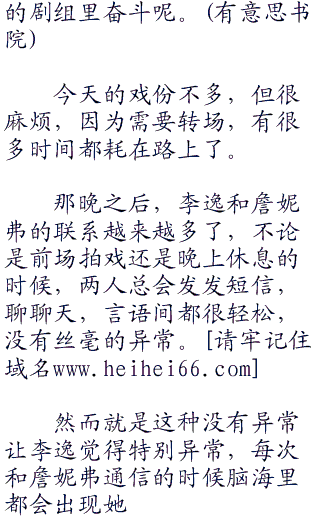 的剧组里奋斗呢。(有意思书
院)
今天的戏份不多，但很
麻烦，因为需要转场，有很
多时间都耗在路上了。
那晚之后，李逸和詹妮
弗的联系越来越多了，不论
是前场拍戏还是晚上休息的
时候，两人总会发发短信，
聊聊天，言语间都很轻松，
没有丝毫的异常。[请牢记住
域名www.heihei66.com]
然而就是这种没有异常
让李逸觉得特别异常，每次
和詹妮弗通信的时候脑海里
都会出现她